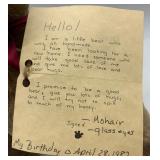 Hello!
I am a little bear who
was all handmade.
I have been looking for a
new home. I need someone who
will take good care of me
and give me lots of love and
bear hugs.
I promise to be a good
bear, give you lots of
hugs, and I will try not to
sit much of my honey.
Signed
- Mohair
- glass eyes
My Birthday is April 28, 1987